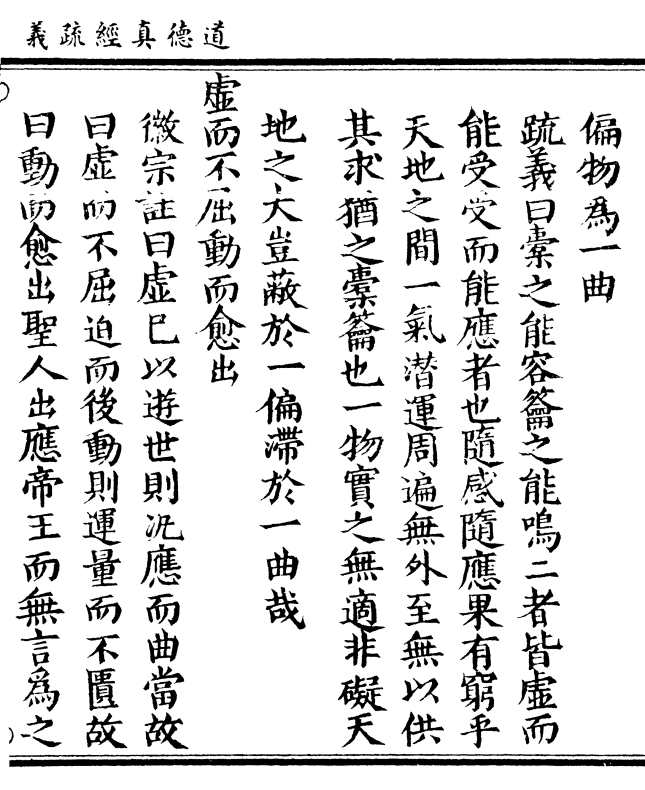 道德真經疏義
偏物爲一曲
疏義曰橐之能容籥之能鳴二者皆虛而
能受受而能應者也隨感隨應果有窮乎
天地之間一氣潛運周遍無外至無以供
其求猶之橐籥也一物實之無適非礙天
地之大豈蔽於一偏滯於一曲哉
虛而不屈動而愈出
徽宗註曰虛已以遊世則汎應而曲當故
曰虛而不屈迫而後動則運量而不匱故
曰動而愈出聖人出應帝王而無言爲之